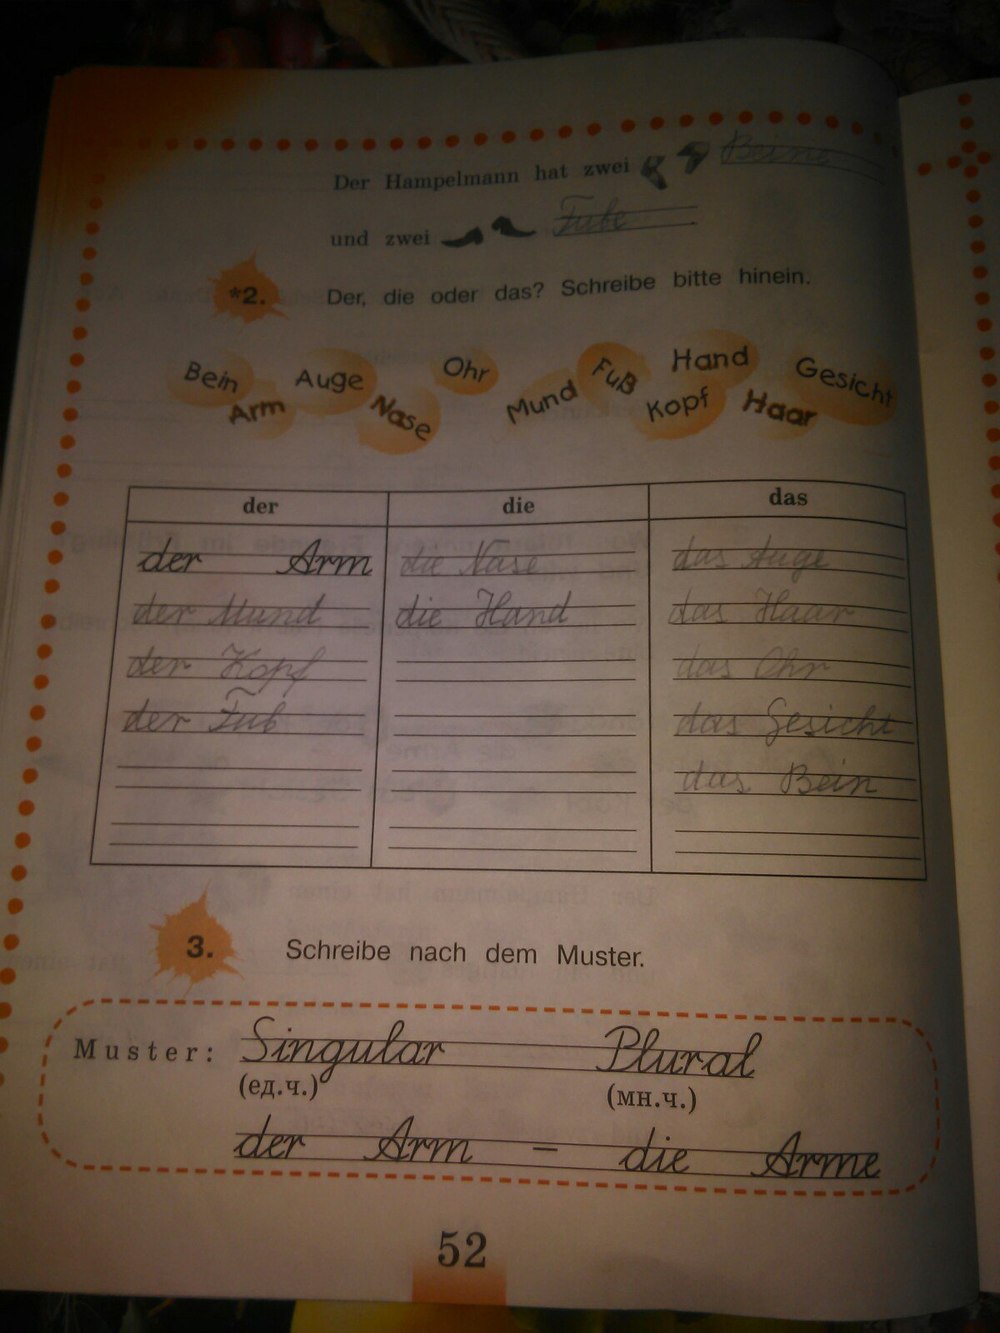 Der Hampelmann hat zwei Beine
und zwei Fuße
*2. Der, die oder das? Schreibe bitte hinein.
Bein Auge Ohr Fuß Hand Gesicht
Arm Nase Mund Kopf Haar
der die das
der Arm die Nase das Auge
der Mund die Hand das Haar
der Kopf das Ohr
der Fuß das Gesicht
das Bein
3. Schreibe nach dem Muster.
Muster: Singular Plural
(ед.ч.) (мн.ч.)
der Arm – die Arme
52